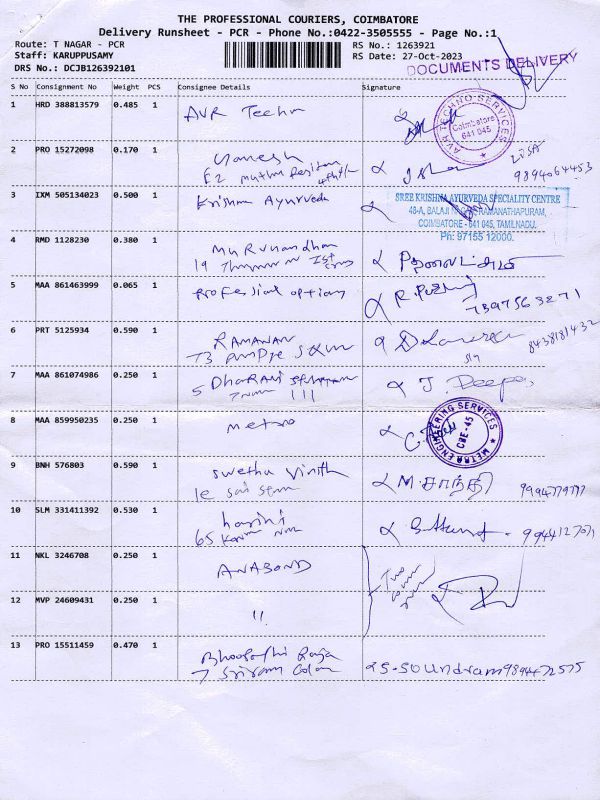 THE PROFESSIONAL COURIERS, COIMBATORE
Delivery Runsheet - PCR - Phone No.:0422-3505555 - Page No.:1
Route: T NAGAR - PCR
RS No.: 1263921
Staff: KARUPPUSAMY
RS Date: 27-Oct-2023
DRS No.: DCJB126392101
DOCUMENTS DELIVERY
S No Consignment No Weight PCS Consignee Details Signature
1 HRD 388813579 0.485 1 AVR Techno
AVR TECHNO SERVICES
Coimbatore
641 045
2 PRO 15272098 0.170 1 Ganesh
E2
9894064453
3 IXM 505134023 0.500 1 Krishna Ayurveda
SREE KRISHNA AYURVEDA SPECIALITY CENTRE
48-A, BALAJI NAGAR, RAMANATHAPURAM,
COIMBATORE - 641 045, TAMILNADU.
Ph: 97155 12000.
4 RMD 1128230 0.380 1 Murunandhan
19
5 MAA 861463999 0.065 1 Professional option
7397563271
6 PRT 5125934 0.590 1 RAMANAN
73
8438181432
7 MAA 861074986 0.250 1 5 DHARANI
J. Deepa
8 MAA 859950235 0.250 1 metro
METRA ENGINEERING SERVICES
CBE-45
9 BNH 576803 0.590 1 Swetha Vinith
M. சாந்தி 9994779797
10 SLM 331411392 0.530 1 harini
65
11 NKL 3246708 0.250 1 ANABOND
Two
12 MVP 24609431 0.250 1 "
13 PRO 15511459 0.470 1 Bhoopathi Raja
7 Sriram Colon
S. Soundram 9894472575